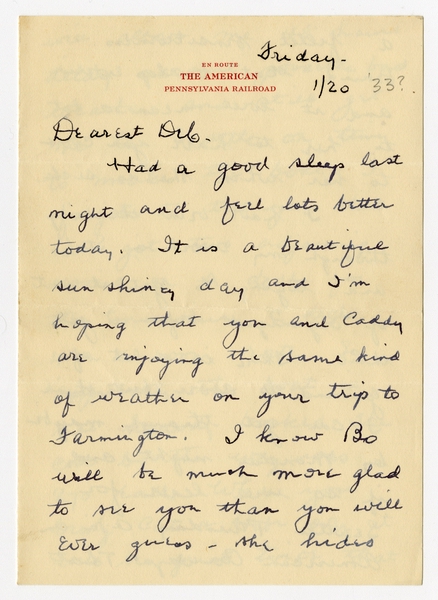 Friday-
EN ROUTE
THE AMERICAN
PENNSYLVANIA RAILROAD
1/20 '33?.
Dearest Deb.
Had a good sleep last
night and feel lots better
today. It is a beautiful
sun shiny day and I'm
hoping that you and Caddy
are enjoying the same kind
of weather on your trip to
Farmington. I know Bo
will be much more glad
to see you than you will
ever guess - she hides